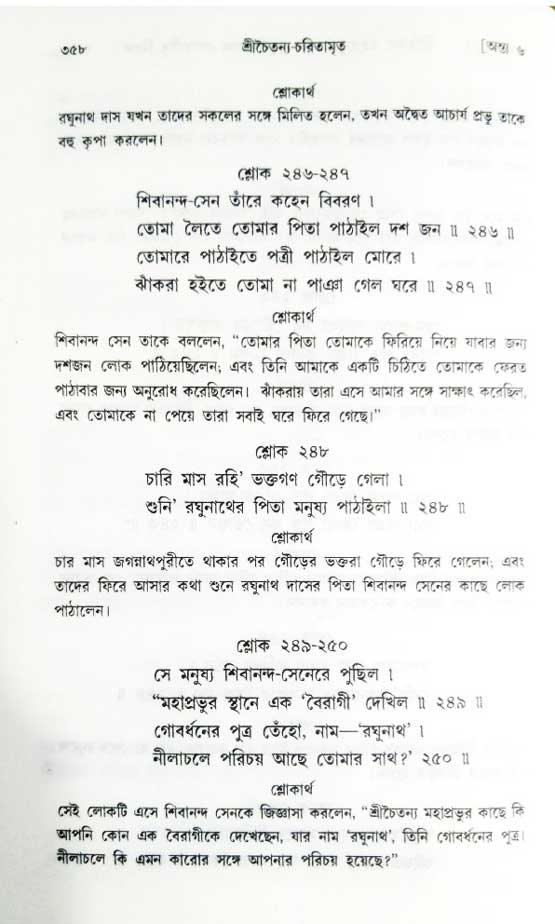 ৩৫৮ শ্রীচৈতন্য-চরিতামৃত [অন্ত্য ৬
শ্লোকার্থ
রঘুনাথ দাস যখন তাদের সকলের সঙ্গে মিলিত হলেন, তখন অদ্বৈত আচার্য প্রভু তাকে
বহু কৃপা করলেন।
শ্লোক ২৪৬-২৪৭
শিবানন্দ-সেন তাঁরে কহেন বিবরণ ।
তোমা লৈতে তোমার পিতা পাঠাইল দশ জন ॥ ২৪৬ ॥
তোমারে পাঠাইতে পত্রী পাঠাইল মোরে ।
ঝাঁকরা হইতে তোমা না পাঞা গেল ঘরে ॥ ২৪৭ ॥
শ্লোকার্থ
শিবানন্দ সেন তাকে বললেন, “তোমার পিতা তোমাকে ফিরিয়ে নিয়ে যাবার জন্য
দশজন লোক পাঠিয়েছিলেন; এবং তিনি আমাকে একটি চিঠিতে তোমাকে ফেরত
পাঠাবার জন্য অনুরোধ করেছিলেন। ঝাঁকরায় তারা এসে আমার সঙ্গে সাক্ষাৎ করেছিল,
এবং তোমাকে না পেয়ে তারা সবাই ঘরে ফিরে গেছে।”
শ্লোক ২৪৮
চারি মাস রহি’ ভক্তগণ গৌড়ে গেলা ।
শুনি’ রঘুনাথের পিতা মনুষ্য পাঠাইলা ॥ ২৪৮ ॥
শ্লোকার্থ
চার মাস জগন্নাথপুরীতে থাকার পর গৌড়ের ভক্তরা গৌড়ে ফিরে গেলেন; এবং
তাদের ফিরে আসার কথা শুনে রঘুনাথ দাসের পিতা শিবানন্দ সেনের কাছে লোক
পাঠালেন।
শ্লোক ২৪৯-২৫০
সে মনুষ্য শিবানন্দ-সেনেরে পুছিল ।
“মহাপ্রভুর স্থানে এক ‘বৈরাগী’ দেখিল ॥ ২৪৯ ॥
গোবর্ধনের পুত্র তেঁহো, নাম—‘রঘুনাথ’ ।
নীলাচলে পরিচয় আছে তোমার সাথ?’ ২৫০ ॥
শ্লোকার্থ
সেই লোকটি এসে শিবানন্দ সেনকে জিজ্ঞাসা করলেন, “শ্রীচৈতন্য মহাপ্রভুর কাছে কি
আপনি কোন এক বৈরাগীকে দেখেছেন, যার নাম ‘রঘুনাথ’, তিনি গোবর্ধনের পুত্র।
নীলাচলে কি এমন কারোর সঙ্গে আপনার পরিচয় হয়েছে?”